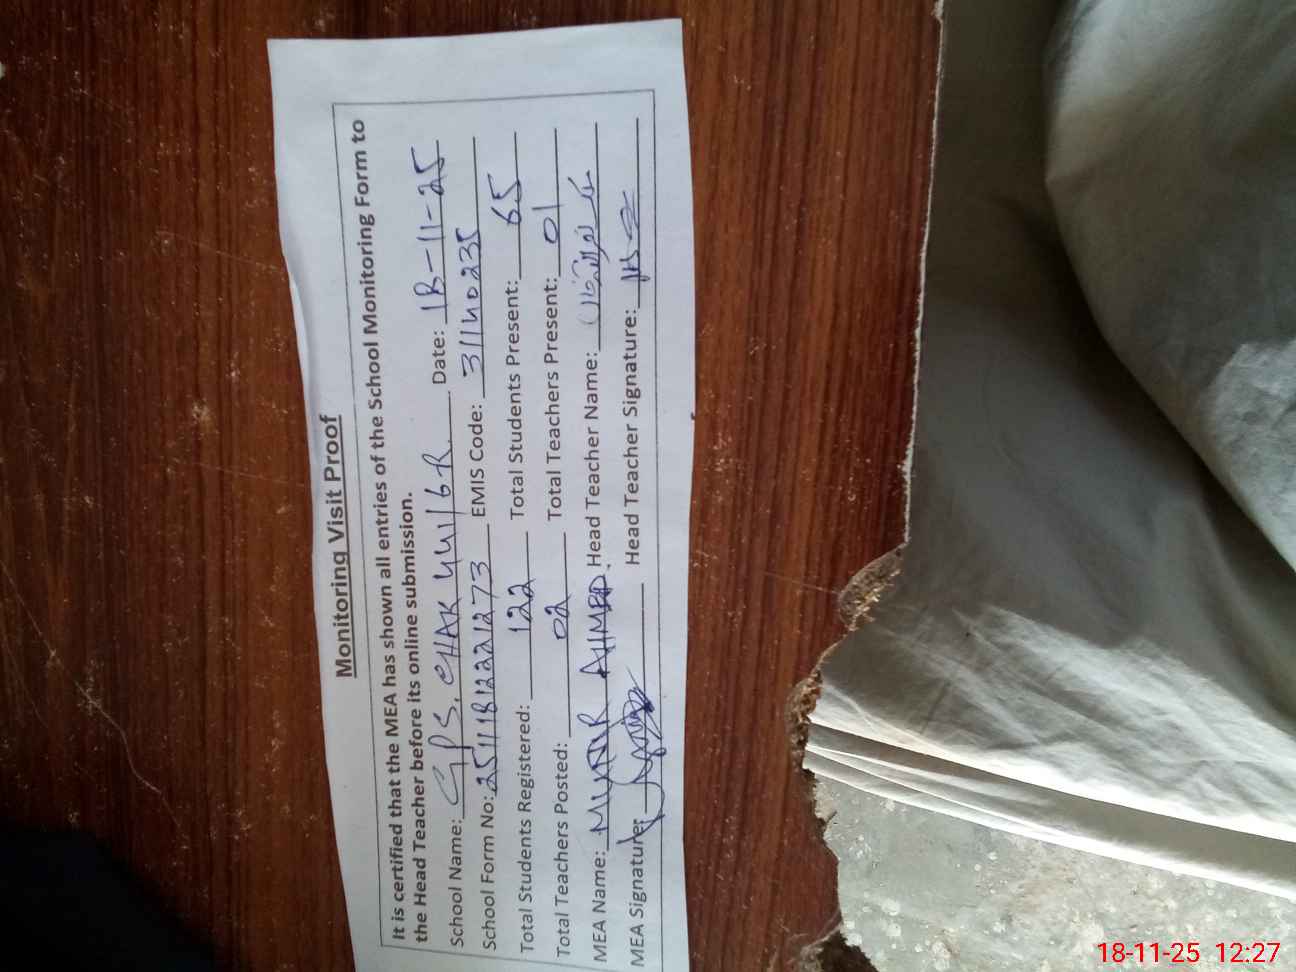 Monitoring Visit Proof
It is certified that the MEA has shown all entries of the School Monitoring Form to
the Head Teacher before its online submission.
School Name: GPS. CHAK 441/6-R Date: 18-11-25
School Form No: 251118122221273 EMIS Code: 31140235
Total Students Registered: 122 Total Students Present: 65
Total Teachers Posted: 02 Total Teachers Present: 01
MEA Name: AHMED. Head Teacher Name:
MEA Signature: Head Teacher Signature:
18-11-25 12:27